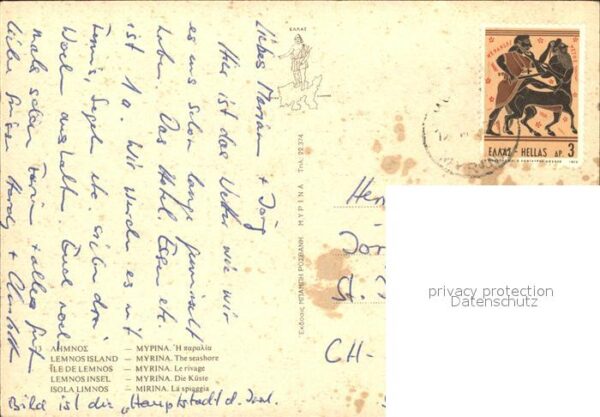 Liebes Mariann + Jörg
Hier ist das Wetter wie wir
es uns schon lange gewünscht
haben. Das Hotel, Essen etc.
ist 1a. Wir werden es mit
Tennis, Segeln etc. sicher drei
Wochen aushalten. Euch noch
mals schöne Ferien + alles gute
liebe Grüsse Hardy +
Bild ist die "Hauptstadt d. Insel.
ΛΗΜΝΟΣ — ΜΥΡΙΝΑ. Ἡ παραλία
LEMNOS ISLAND — MYRINA. The seashore
ÎLE DE LEMNOS — MYRINA. Le rivage
LEMNOS INSEL — MYRINA. Die Küste
ISOLA LIMNOS — MIRINA. La spiaggia
ΕΛΛΑΣ
Ἐκδόσεις ΜΠΑΜΠΗ ΡΟΣΒΑΝΗ ΜΥΡΙΝΑ Τηλ. 22 374
ΕΛΛΑΣ - HELLAS ΔΡ. 3
Her
Jör
St.
CH-
privacy protection
Datenschutz